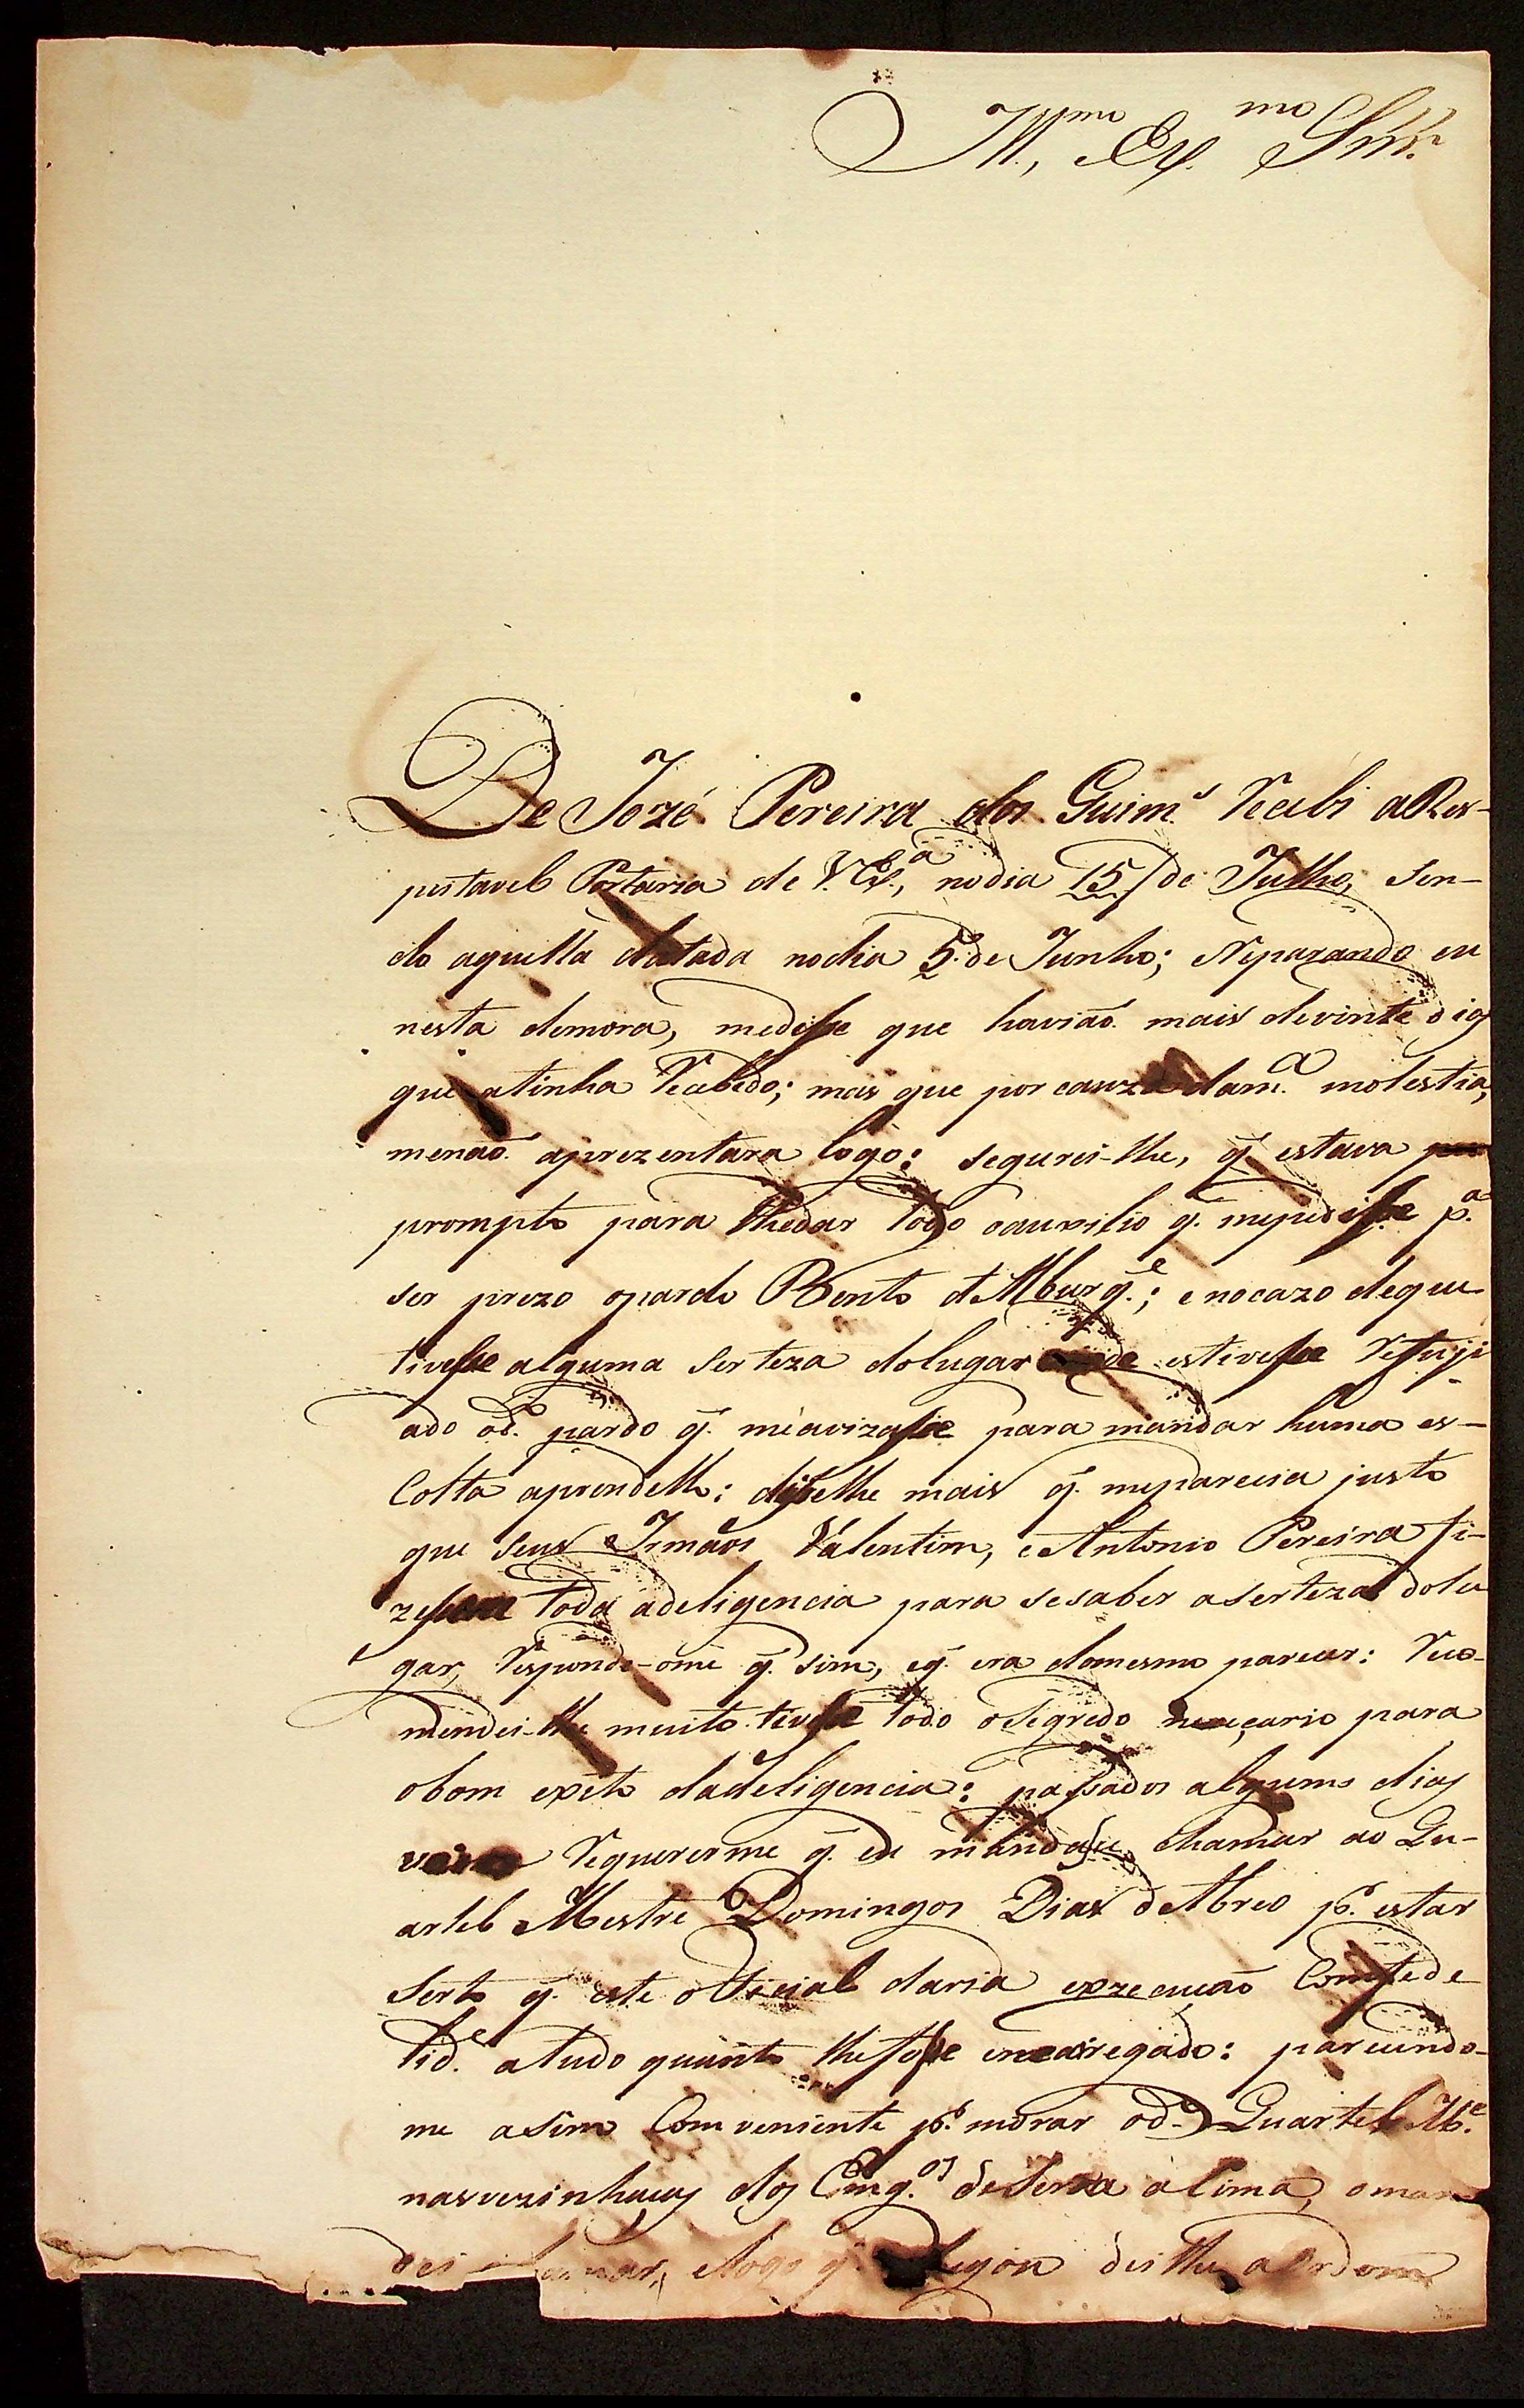 Ill.mo, Ex.mo Snr.
De Jozé Pereira dos Guim.s Recebi a Res-
peitavel Portaria de V. Ex.a, no dia 15 de Julho, sen-
do aquella datada no dia 5 de Junho; Reparando eu
nesta demora, medisse que havião mais devinte dias
que atinha Recebido; mas que por cauza dam.a molestia,
menão aprezentara logo: segurei-lhe, q̃ estava
prompto para lhedar todo oauxilio q̃ mepedisse p.a
ser prezo opardo Bento d'Albuq.e; e nocazo deque
tivesse alguma serteza dolugar onde estivesse Refugi-
ado od.o pardo q̃ meavizasse para mandar huma es-
Colta aprendello: disselhe mais q̃ meparecia justo
que seus Irmãos Valentim, e Antonio Pereira fi-
zessem toda adeligencia para sesaber aserteza dolu
gar, Responde-ome q̃ sim, eq̃ era domesmo parecer: Reco-
mendei-lhe muito tivesse todo osegredo neceçario para
obom exito dadeligencia: passados alguns dias
veio Requererme q̃ eu mandasse chamar ao Qu-
artel Mestre Domingos Dias d'Abreo p.a estar
Serto q̃ este oficial daria exzecução Comfede
lid.e atudo quanto lhefosse encarregado: parecendo-
me asim Comveniente p.r morar od.o Quartel M.e
nasvezinhaças dos Eng.os deSerra aSima, oman
dei chamar, elogo q̃ chegou deilhe aordem